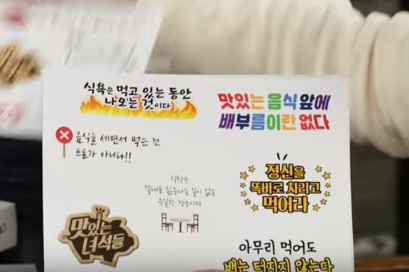 식욕은 먹고 있는 동안
나오는 것이다
맛있는 음식 앞에
배부름이란 없다
음식을 세면서 먹는 건
프로가 아니다!!
정신을
똑바로 차리고
먹어라
식탁은
맛있는
녀석들
아무리 먹어도
배는 터지지 않는다